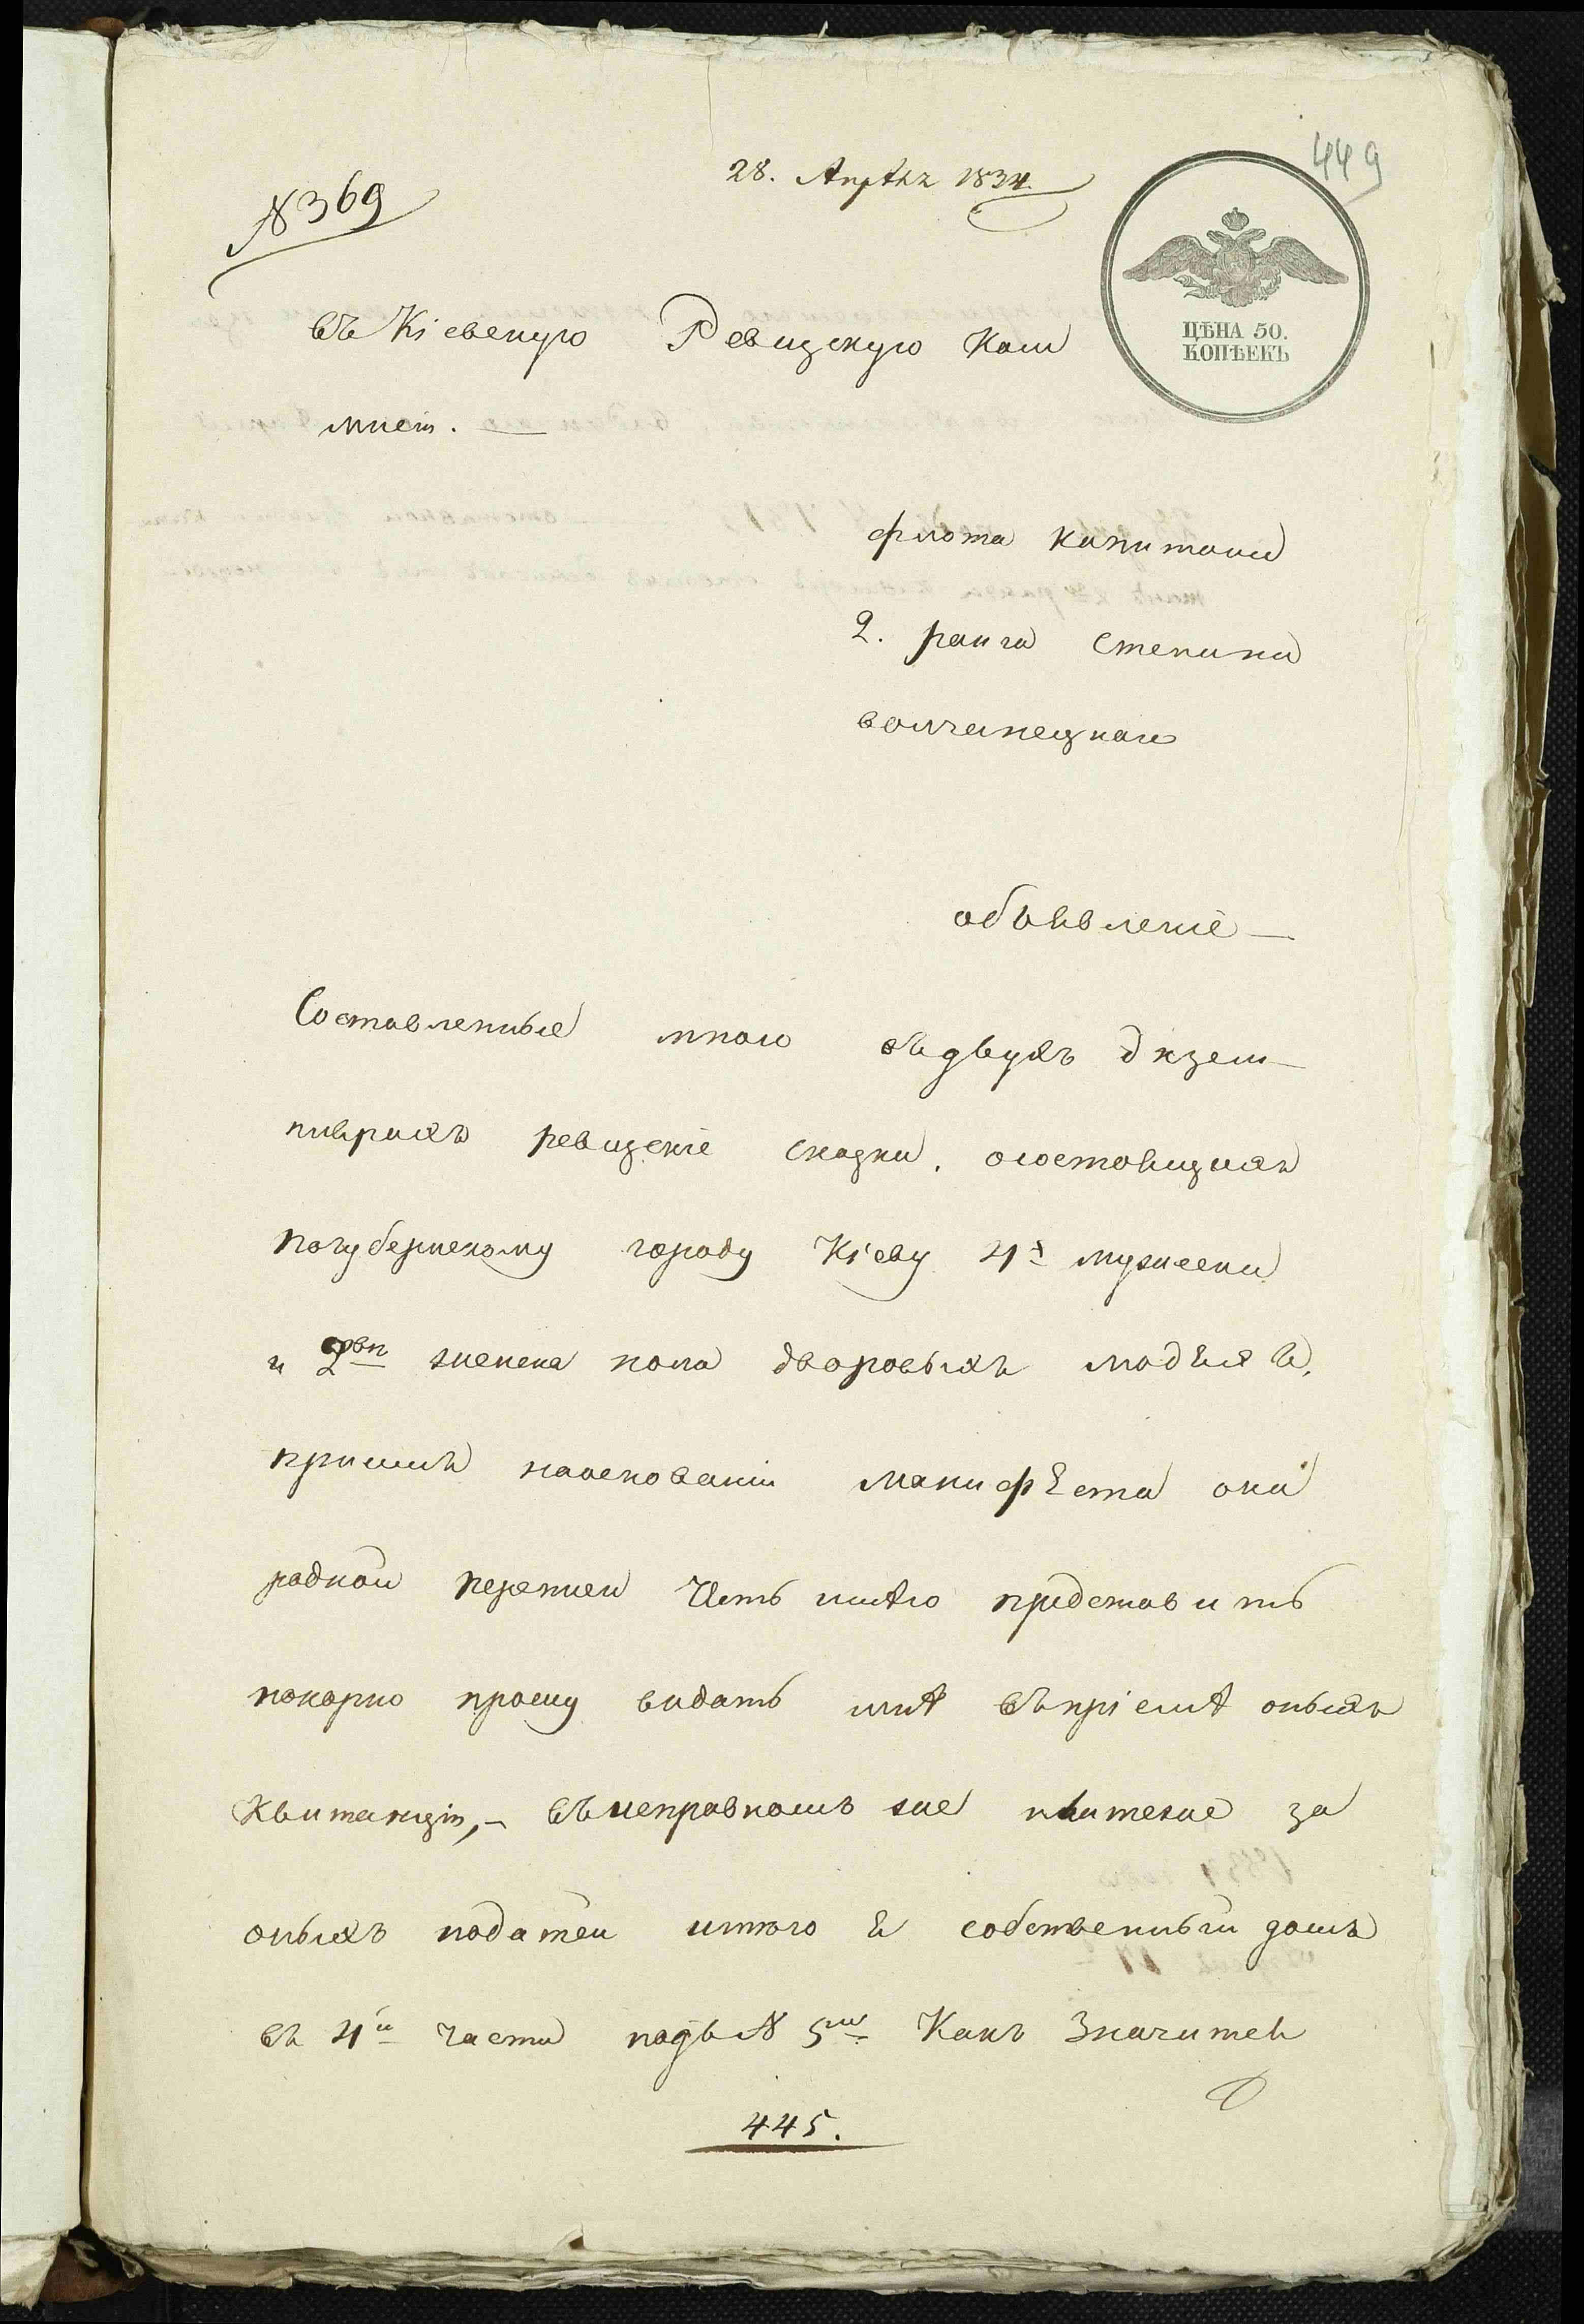 449
28. Апрѣл 1834.
№ 369
ЦѢНА 50.
КОПѢЕКЪ
въ Кіевскую Ревизскую Ком
мисію. —
флота капитана
2. ранга Степана
волчанецкаго
объявленіе —
Составленные мною въ двухъ экзем
плярахъ ревизскіе сказки, о состоящихъ
по губернскому городу Кіеву 4х мужеска
и 2 женска пола дворовыхъ людяхъ,
при семъ на основаніи манифеста о на
родной переписи честь имѣю представить
покорно прошу видать мнѣ въ пріемѣ оныхъ
Квитанцію, — въ исправномъ же платеже за
оныхъ податей имѣю я собственный домъ
въ 4й части подъ № 5м Какъ значитъ
445.